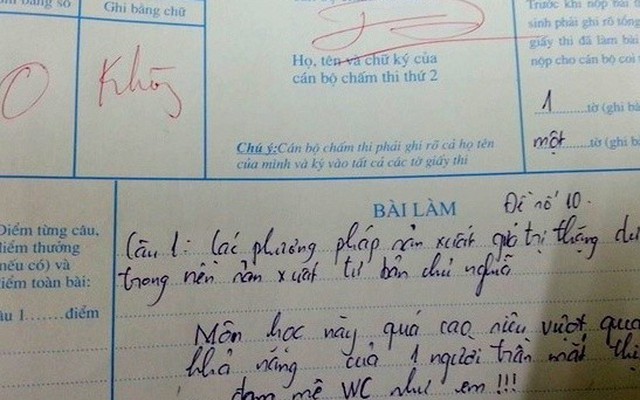 Ghi bằng chữ
0
Không
Họ, tên và chữ ký của
cán bộ chấm thi thứ 2
Chú ý: Cán bộ chấm thi phải ghi rõ cả họ tên
của mình và ký vào tất cả các tờ giấy thi
Trước khi nộp bài
sinh phải ghi rõ tổng
giấy thi đã làm bài
nộp cho cán bộ coi
1 tờ (ghi
một tờ (ghi
BÀI LÀM
Đề số 10.
Điểm từng câu,
điểm thưởng
(nếu có) và
điểm toàn bài:
Câu 1......điểm
Câu 1: Các phương pháp sản xuất giá trị thặng dư
trong nền sản xuất tư bản chủ nghĩa
Môn học này quá cao siêu vượt qua
khả năng của 1 người trần mắt thịt
đam mê WC như em !!!